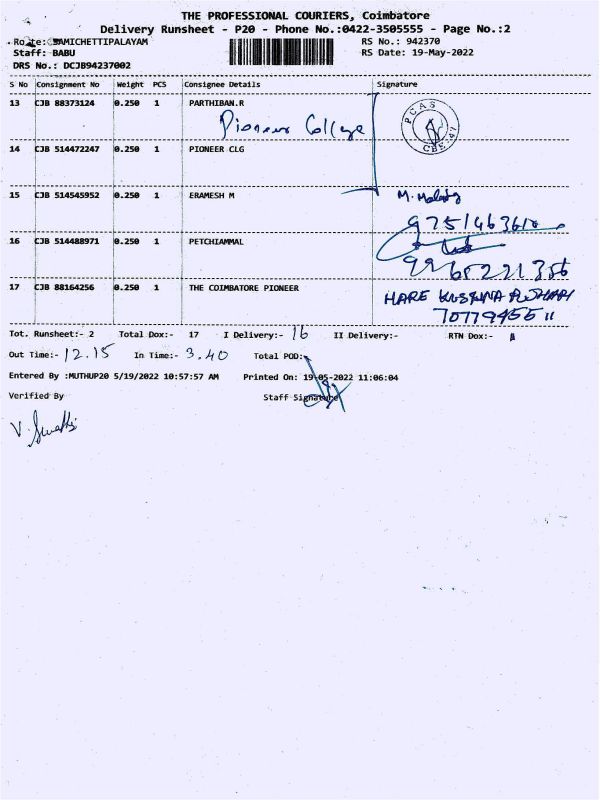 THE PROFESSIONAL COURIERS, Coimbatore
Delivery Runsheet - P20 - Phone No.:0422-3505555 - Page No.:2
Route: SAMICHETTIPALAYAM RS No.: 942370
Staff: BABU RS Date: 19-May-2022
DRS No.: DCJB94237002
S No Consignment No Weight PCS Consignee Details Signature
13 CJB 88373124 0.250 1 PARTHIBAN.R
Pioneer College
PCAS
CBE-47
14 CJB 514472247 0.250 1 PIONEER CLG
15 CJB 514545952 0.250 1 ERAMESH M M.
16 CJB 514488971 0.250 1 PETCHIAMMAL
17 CJB 88164256 0.250 1 THE COIMBATORE PIONEER HARE
Tot. Runsheet:- 2 Total Dox:- 17 I Delivery:- 16 II Delivery:- RTN Dox:-
Out Time:- 12.15 In Time:- 3.40 Total POD:-
Entered By :MUTHUP20 5/19/2022 10:57:57 AM Printed On: 19-05-2022 11:06:04
Verified By Staff Signature